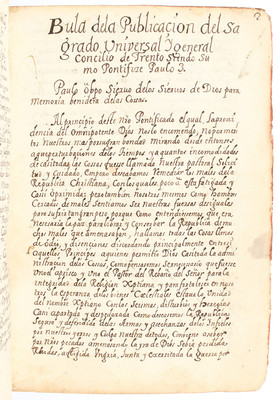 Bula dela Publicacion del Sa
grado Universal I general
Concilio de Trento Siendo Su
mo Pontifize Paulo 3.
Paulo Obpo Sieruo delos Sieruos de Dios para
Memoria benidera delas Cosas.
Al principio deste nro Pontificado el qual, la proui
dencia del Omnipotente Dios no lo encomendo, No por me
ritos Nuestros mas por su gran bondad Mirando desde entonces
a que perturbaciones delos tiempos ya quantas incomodidades
de casi todas las Cosas fuese llamada Nuestra pastoral Solici
tud y Cuidado, Empero deseabamos Remediar los males dela
Republica Christiana, Con los quales poco a esta fatigada y
Casi Oprimida pero tambien Nosotros mismos Como hombres
Cercados de males Sentiamos Ser Nuestras fuerzas desiguales
para sufrir tan gran peso porque Como entendiesemos que era
Necesaria la paz para librar y Conserbar la Republica de mu
chos males que amenazaban, hallamos todas las Cosas llenas
de odios, y disenciones discordando principalmente Entre si
aquellos Principes a quienes permitio Dios Casi toda la admi
nistracion delas Cosas, Como procurasemos Siempre que ubiese
Un redil y Un Pastor del Rebaño del Señor para la
integridad dela Religion Xptiana y para fortalecer en noso
tros la esperanza delos bienes Celestiales Estaua la Unidad
del Nombre Xptiano Con los Scismas, disturbios y Heregias
Casi apartada y despedazada Como deseasemos la Republica
Segura y defendida delas Armas y asechanzas delos Infieles
por nuestros yerros y Culpa Nuestra de todos, Conviene a saber
por Nros pecados amenazando la yra de Dios Sobia perdida
Rhodas, afligida Vngria, Junta y Executada la Guerra por